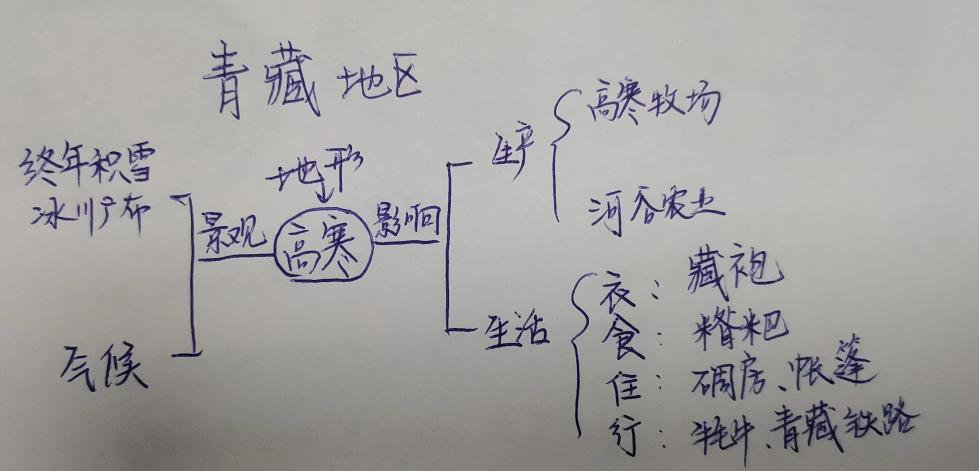 青藏地区
终年积雪
冰川广布
气候
景观
地形
高寒
影响
生产
高寒牧场
河谷农业
生活
衣：藏袍
食：糌粑
住：碉房、帐篷
行：牦牛、青藏铁路